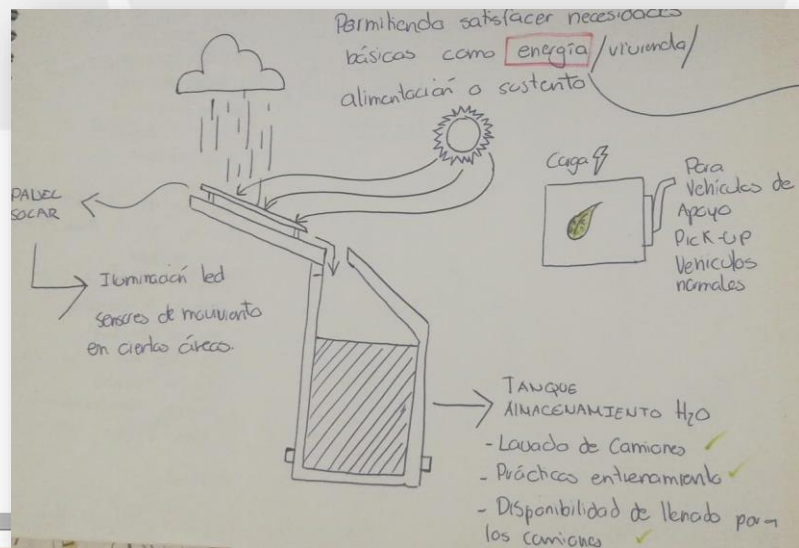 Permitiendo satisfacer necesidades
básicas como energía/vivienda/
alimentación o sustento
PANEL
SOLAR
Iluminación led
sensores de movimiento
en ciertas áreas.
Carga
Para
Vehículos de
Apoyo
PICK-UP
Vehículos
normales
TANQUE
ALMACENAMIENTO H2O
- Lavado de Camiones ✓
- Prácticas entrenamiento ✓
- Disponibilidad de llenado para
los camiones ✓